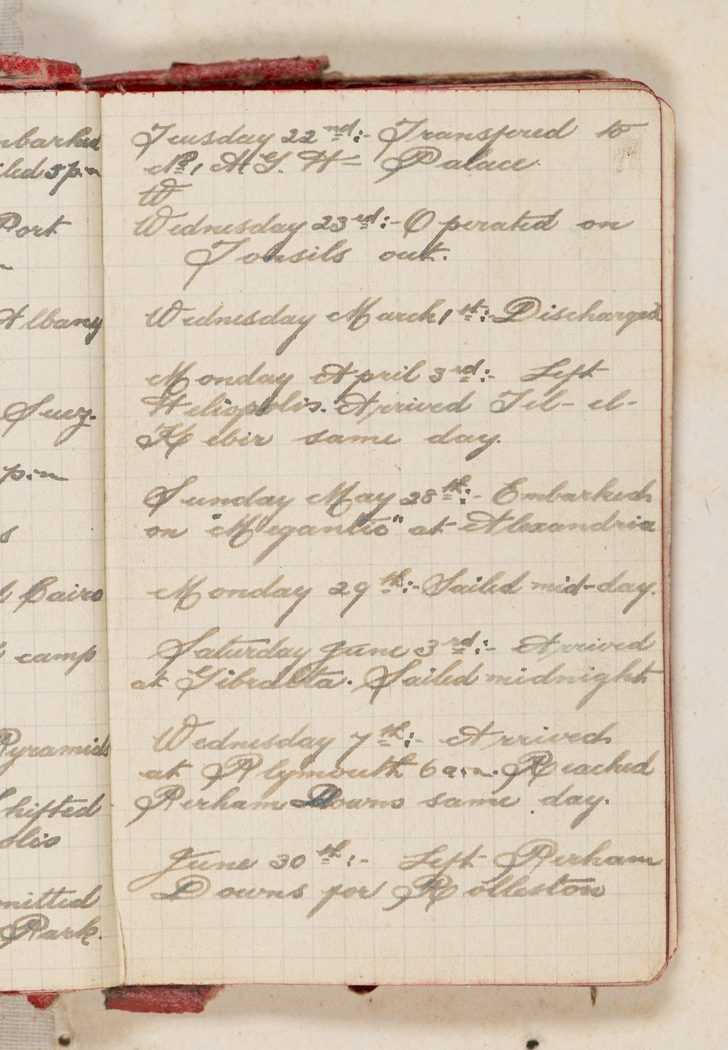 nbarked
iled 5 p.m
Port
Albany
Suez.
p.m
s
l Cairo
l camp
Pyramids
Shifted
olis
mitted
Park.
Tuesday 22nd:- Transfered to
No 1 A. G. H = Palace
W
Wednesday 23rd:- Operated on
Tonsils out.
Wednesday March 1st:- Discharged
Monday April 3rd:- Left
Heliopolis. Arrived Tel-el-
Kebir same day.
Sunday May 28th:- Embarked
on "Megantic" at Alexandria
Monday 29th:- Sailed mid-day.
Saturday June 3rd:- Arrived
at Gibralta. Sailed midnight
Wednesday 7th:- Arrived
at Plymouth 6 a.m. Reached
Perham Downs same day.
June 30th:- Left Perham
Downs for Rolleston